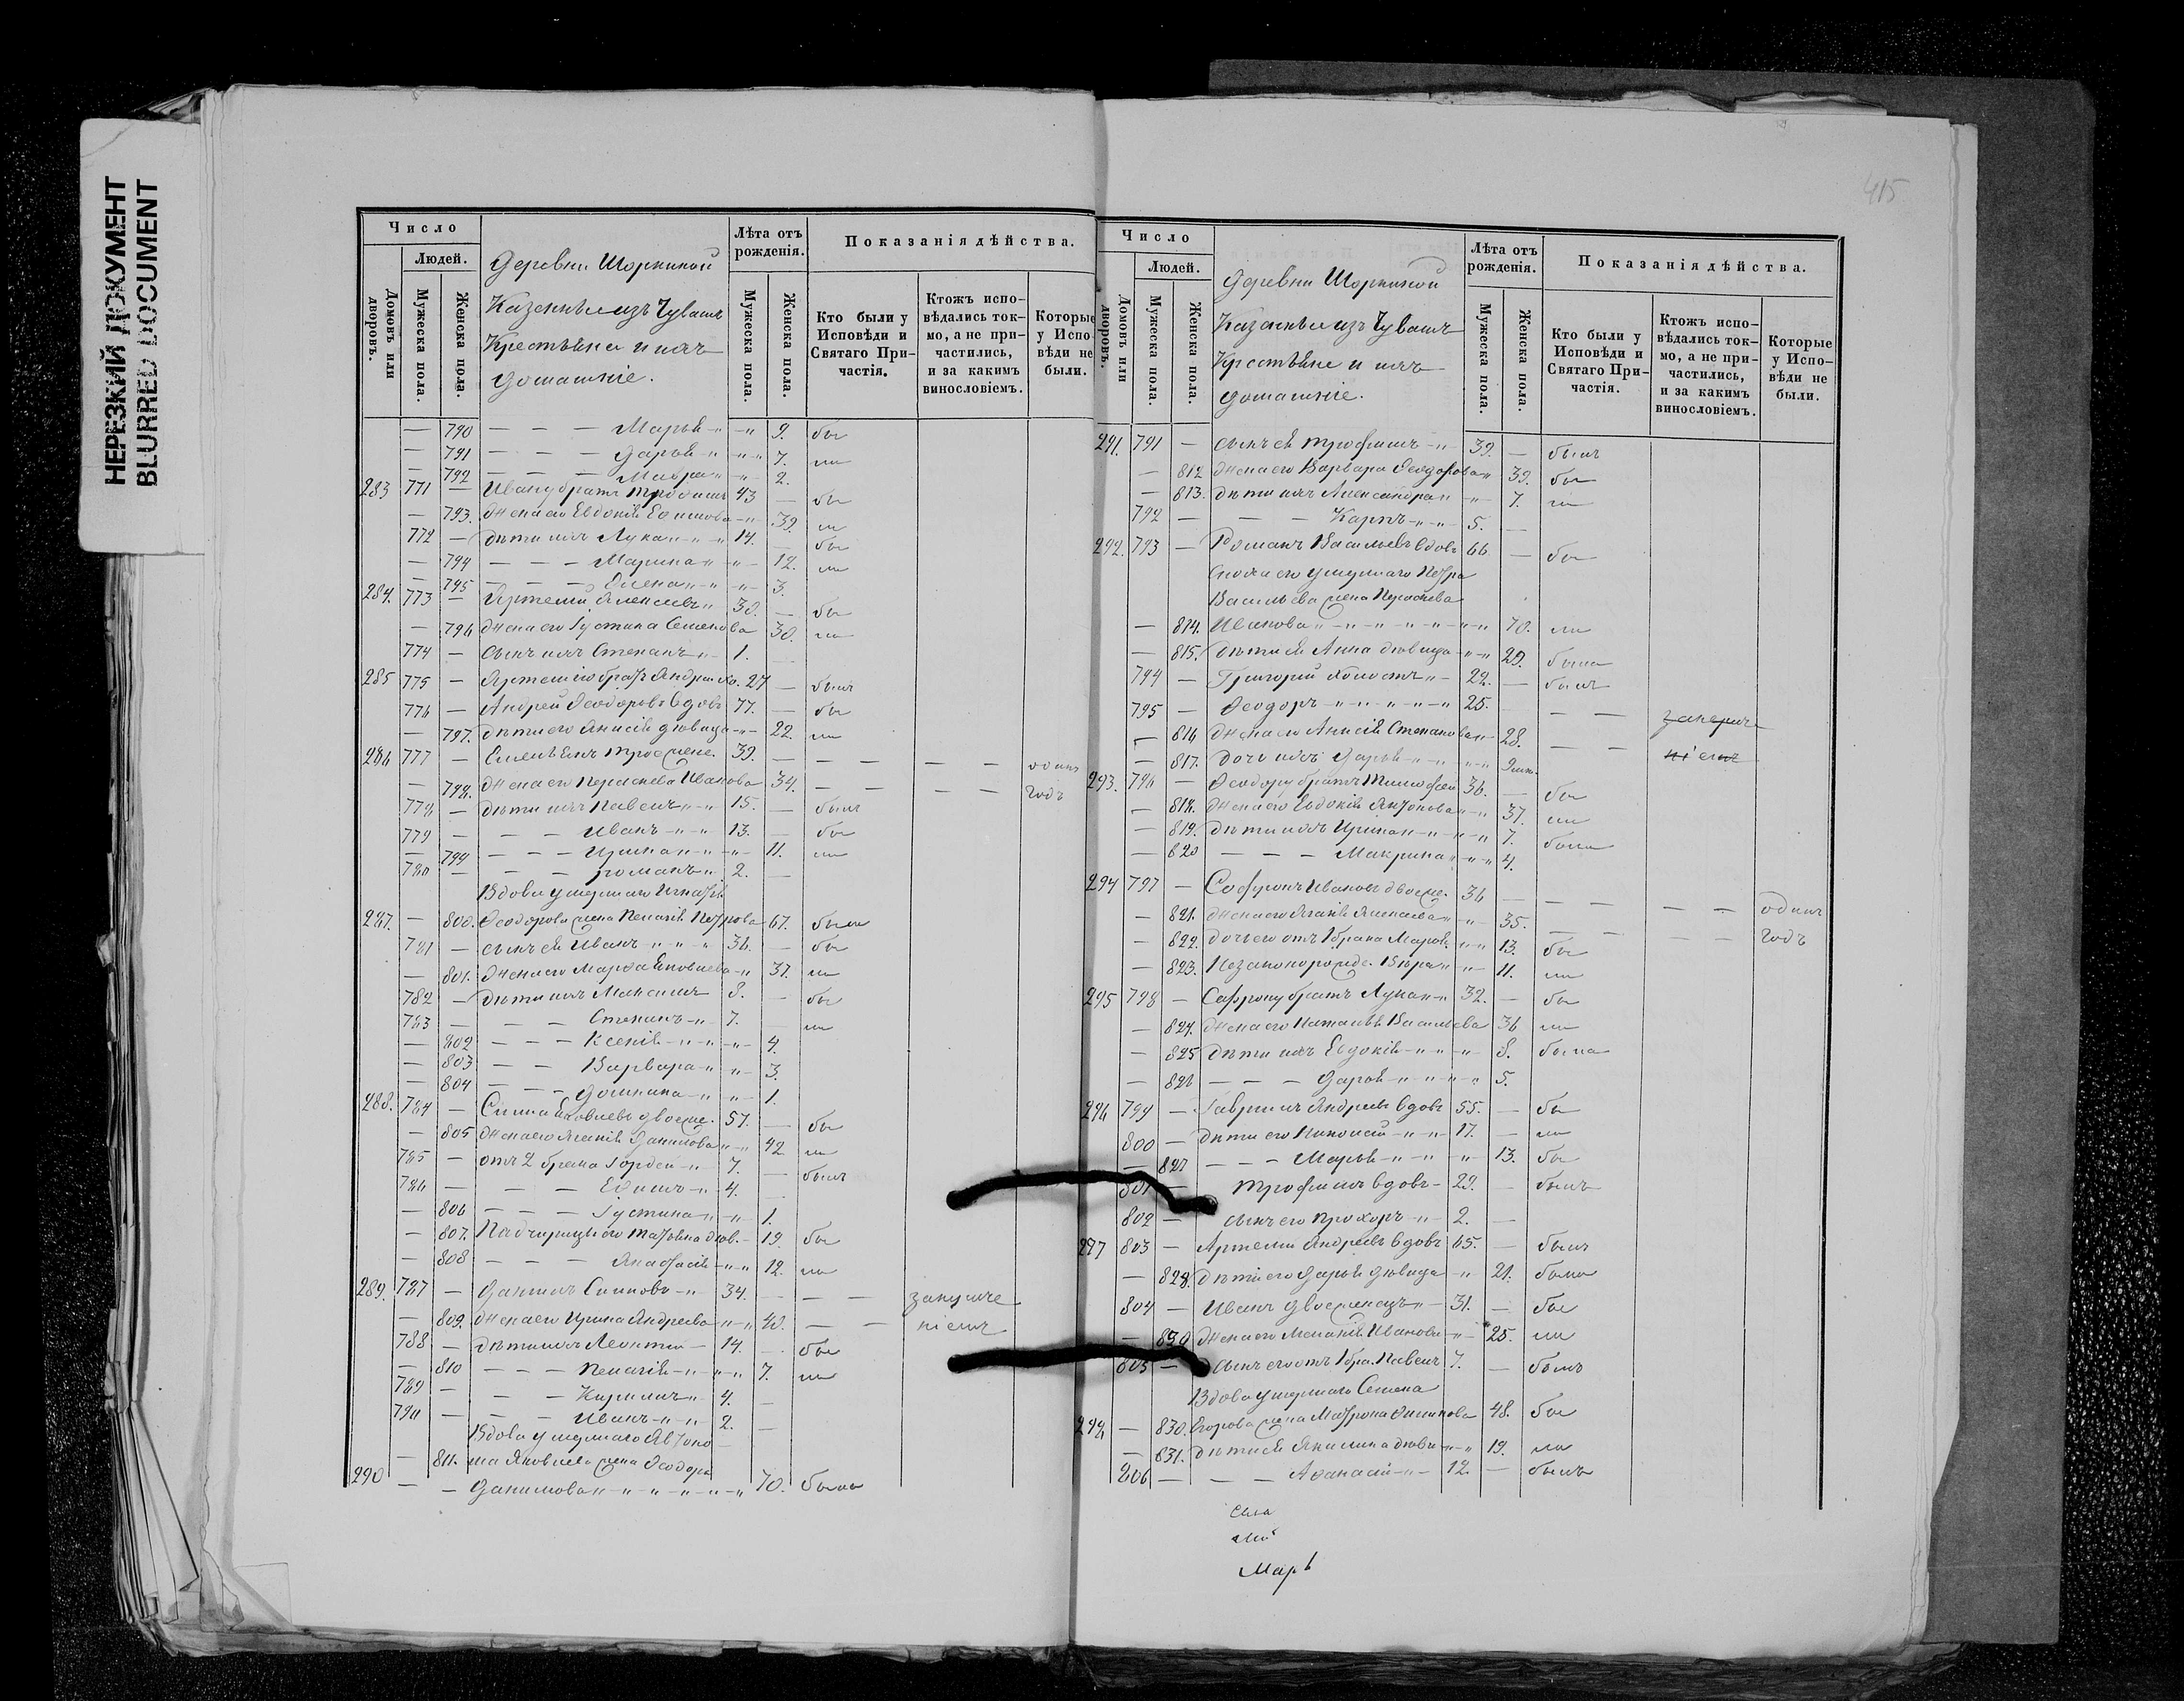 НЕРЕЗКИЙ ДОКУМЕНТ
BLURRED DOCUMENT
415
Число
Людей.
Домовъ или дворовъ.
Мужеска пола.
Женска пола.
Деревни Шоркиной
Казенные изъ Чувашъ
Крестьяне и ихъ
домашніе.
Лѣта отъ рожденія.
Мужеска пола.
Женска пола.
Показанія дѣйства.
Кто были у Исповѣди и Святаго Причастія.
Ктожъ исповѣдались токмо, а не причастились, и за какимъ винословіемъ.
Которые у Исповѣди не были.
— 790 — — — Марья 9. бы
— 791 — — — Дарья 7. ли
— 792 — — — Мавра 2.
283 771 — Ивану братъ Трофимъ 43 — бы
— 793. Жена его Евдокія Ефимова 39. ли
772 — Дѣти ихъ Лука 14. — бы
— 794 — — — Марина 12. ли
— 795 — — — Елена 3.
284. 773 — Артемій Алексѣевъ 30. — бы
— 796 Жена его Густина Семенова 30. ли
774 — Сынъ ихъ Степанъ 1.
285 775 — Артемію братъ 27 — былъ
776 — Андрей Ѳеодоровъ вдовъ 77. — бы
— 797. Дѣти его Анисія дѣвица 22. ли
286 777 — 39. — — — — — одинъ
— 798. Жена его Пераскева Иванова 34. — — — — годъ
778 — Дѣти ихъ Павелъ 15. — былъ
779 — — — Иванъ 13. — бы
— 799 — — — Ирина 11. ли
780 — — — Романъ 2. —
Вдова умершаго Игнатія
287. — 800. Ѳеодорова жена Пелагія Петрова 67. была
781 — Сынъ ея Иванъ 36. — бы
— 801. Жена его Марфа Яковлева 37. ли
782 — Дѣти ихъ Максимъ 8. — бы
783 — — — Степанъ 7. — ли
— 802 — — — Ксенія 4.
— 803 — — — Варвара 3.
— 804 — — — Домнина 1.
288. 784 — Симеонъ Яковлевъ двоеже. 57. — бы
— 805 Жена его Агапія Данилова 42 ли
785 — отъ 2 брака Гордей 7. — былъ
786 — — — Ефимъ 4.
— 806 — — — Густина 1.
— 807. Падчерицы его Татьяна дѣв. 19. бы
— 808 — — — Анастасія 12. ли
289. 787 — Даніилъ 34. — — — закуше
— 809. Жена его Ирина Андреева 40. — — ніемъ
788 — Дѣти ихъ Леонтій 14. — бы
— 810 — — — Пелагія 7. ли
789 — — — Кирилъ 4. —
790 — — — Иванъ 2. —
Вдова умершаго Автоно
— 811. ма Яковлева жена Ѳеодора
290 — — Данилова 70. была
Число
Людей.
Домовъ или дворовъ.
Мужеска пола.
Женска пола.
Деревни Шоркиной
Казенные изъ Чувашъ
Крестьяне и ихъ
домашніе.
Лѣта отъ рожденія.
Мужеска пола.
Женска пола.
Показанія дѣйства.
Кто были у Исповѣди и Святаго Причастія.
Ктожъ исповѣдались токмо, а не причастились, и за какимъ винословіемъ.
Которые у Исповѣди не были.
291. 791 — Сынъ ея Трофимъ 39. — былъ
— 812 Жена его Варвара Ѳеодорова 39. бы
— 813. Дѣти ихъ Александра 7. ли
792 — — — Карпъ 5. —
292. 793 — Романъ Васильевъ вдовъ 66. — бы
Сноха его умершаго Петра
Васильева жена Пераскева
— 814. Иванова 70. ли
— 815. Дѣти ея Анна дѣвица 29. была
794 — Григорій холостъ 22. — былъ
795 — Ѳеодоръ 25. — — —
— 816 Жена его Анисія Степанова 28. — —
— 817. Дочь ихъ Дарья
293. 796 — Ѳеодору братъ Тимофей 36. — бы
— 818. Жена его Евдокія Антонова 37. ли
— 819. Дѣти ихъ Ирина 7. была
— 820 — — — Макрина 4.
294 797 — Софронъ Ивановъ двоеже. 36 — — — — — одинъ
— 821. Жена его Агапія Алексеева 35. — — — — годъ
— 822. Дочь его отъ 1 брака Марья 13. бы
— 823. Незаконорожде. Вѣра 11. ли
295 798 — Сафрону братъ Лука 32. — бы
— 824. Жена его Наталія Васильева 36 ли
— 825 Дѣти ихъ Евдокія 8. была
— 826 — — — Дарья 5.
296 799 — Гаврилъ Андреевъ вдовъ 55. — бы
800 — Дѣти его Николай 17. — ли
— 827 — — — Марья 13. бы
801 — Трофимъ вдовъ 29. — былъ
802 — Сынъ его Прохоръ 2. —
297 803 — Артемій Андреевъ вдовъ 65. — былъ
— 828. Дѣти его Дарья дѣвица 21. была
804 — Иванъ двоеженецъ 31. — бы
— 829 Жена его Меланія Иванова 25. ли
805 — Сынъ его отъ 1 бра. Павелъ 7. — былъ
Вдова умершаго Семена
298 — 830. Егорова жена Матрона 48. бы
— 831. Дѣти ея Акилина дѣви 19. ли
806 — — — Афанасій 12. — былъ
Марь